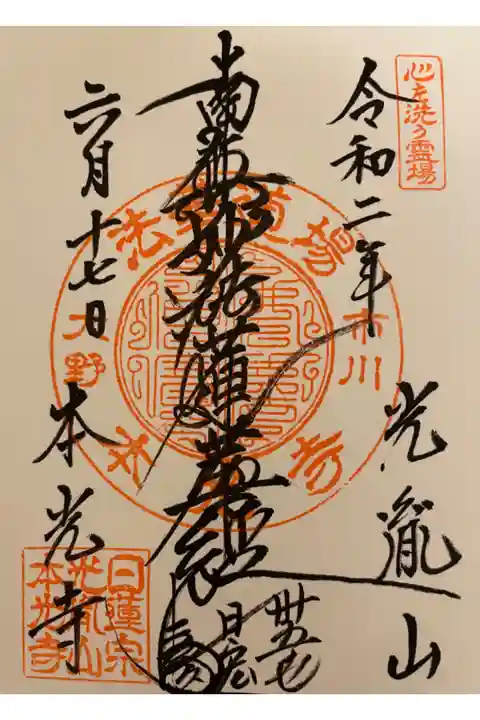 心を洗う霊場
令和二年
光胤山
南無妙法蓮華経
卅五七
日宏
六月十七日
本光寺
法華道場
市川
大野
日蓮宗
光胤山
本光寺